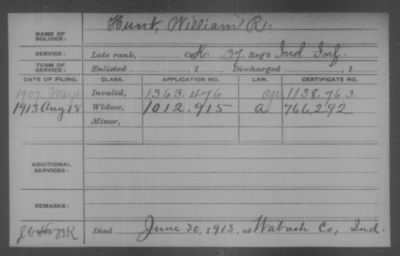 NAME OF SOLDIER: Hunt, William R.
SERVICE: Late rank, Co K. 37 Reg't Ind Inf.
TERM OF SERVICE: Enlisted , 1 Discharged , 1
DATE OF FILING. CLASS. APPLICATION NO. LAW. CERTIFICATE NO.
1907 Invalid, 1363.476 1138.763
1913 Aug 18 Widow, 1012.915 a 766.292
Minor,
ADDITIONAL SERVICES:
REMARKS:
Died June 30, 1913, at Wabash Co, Ind.